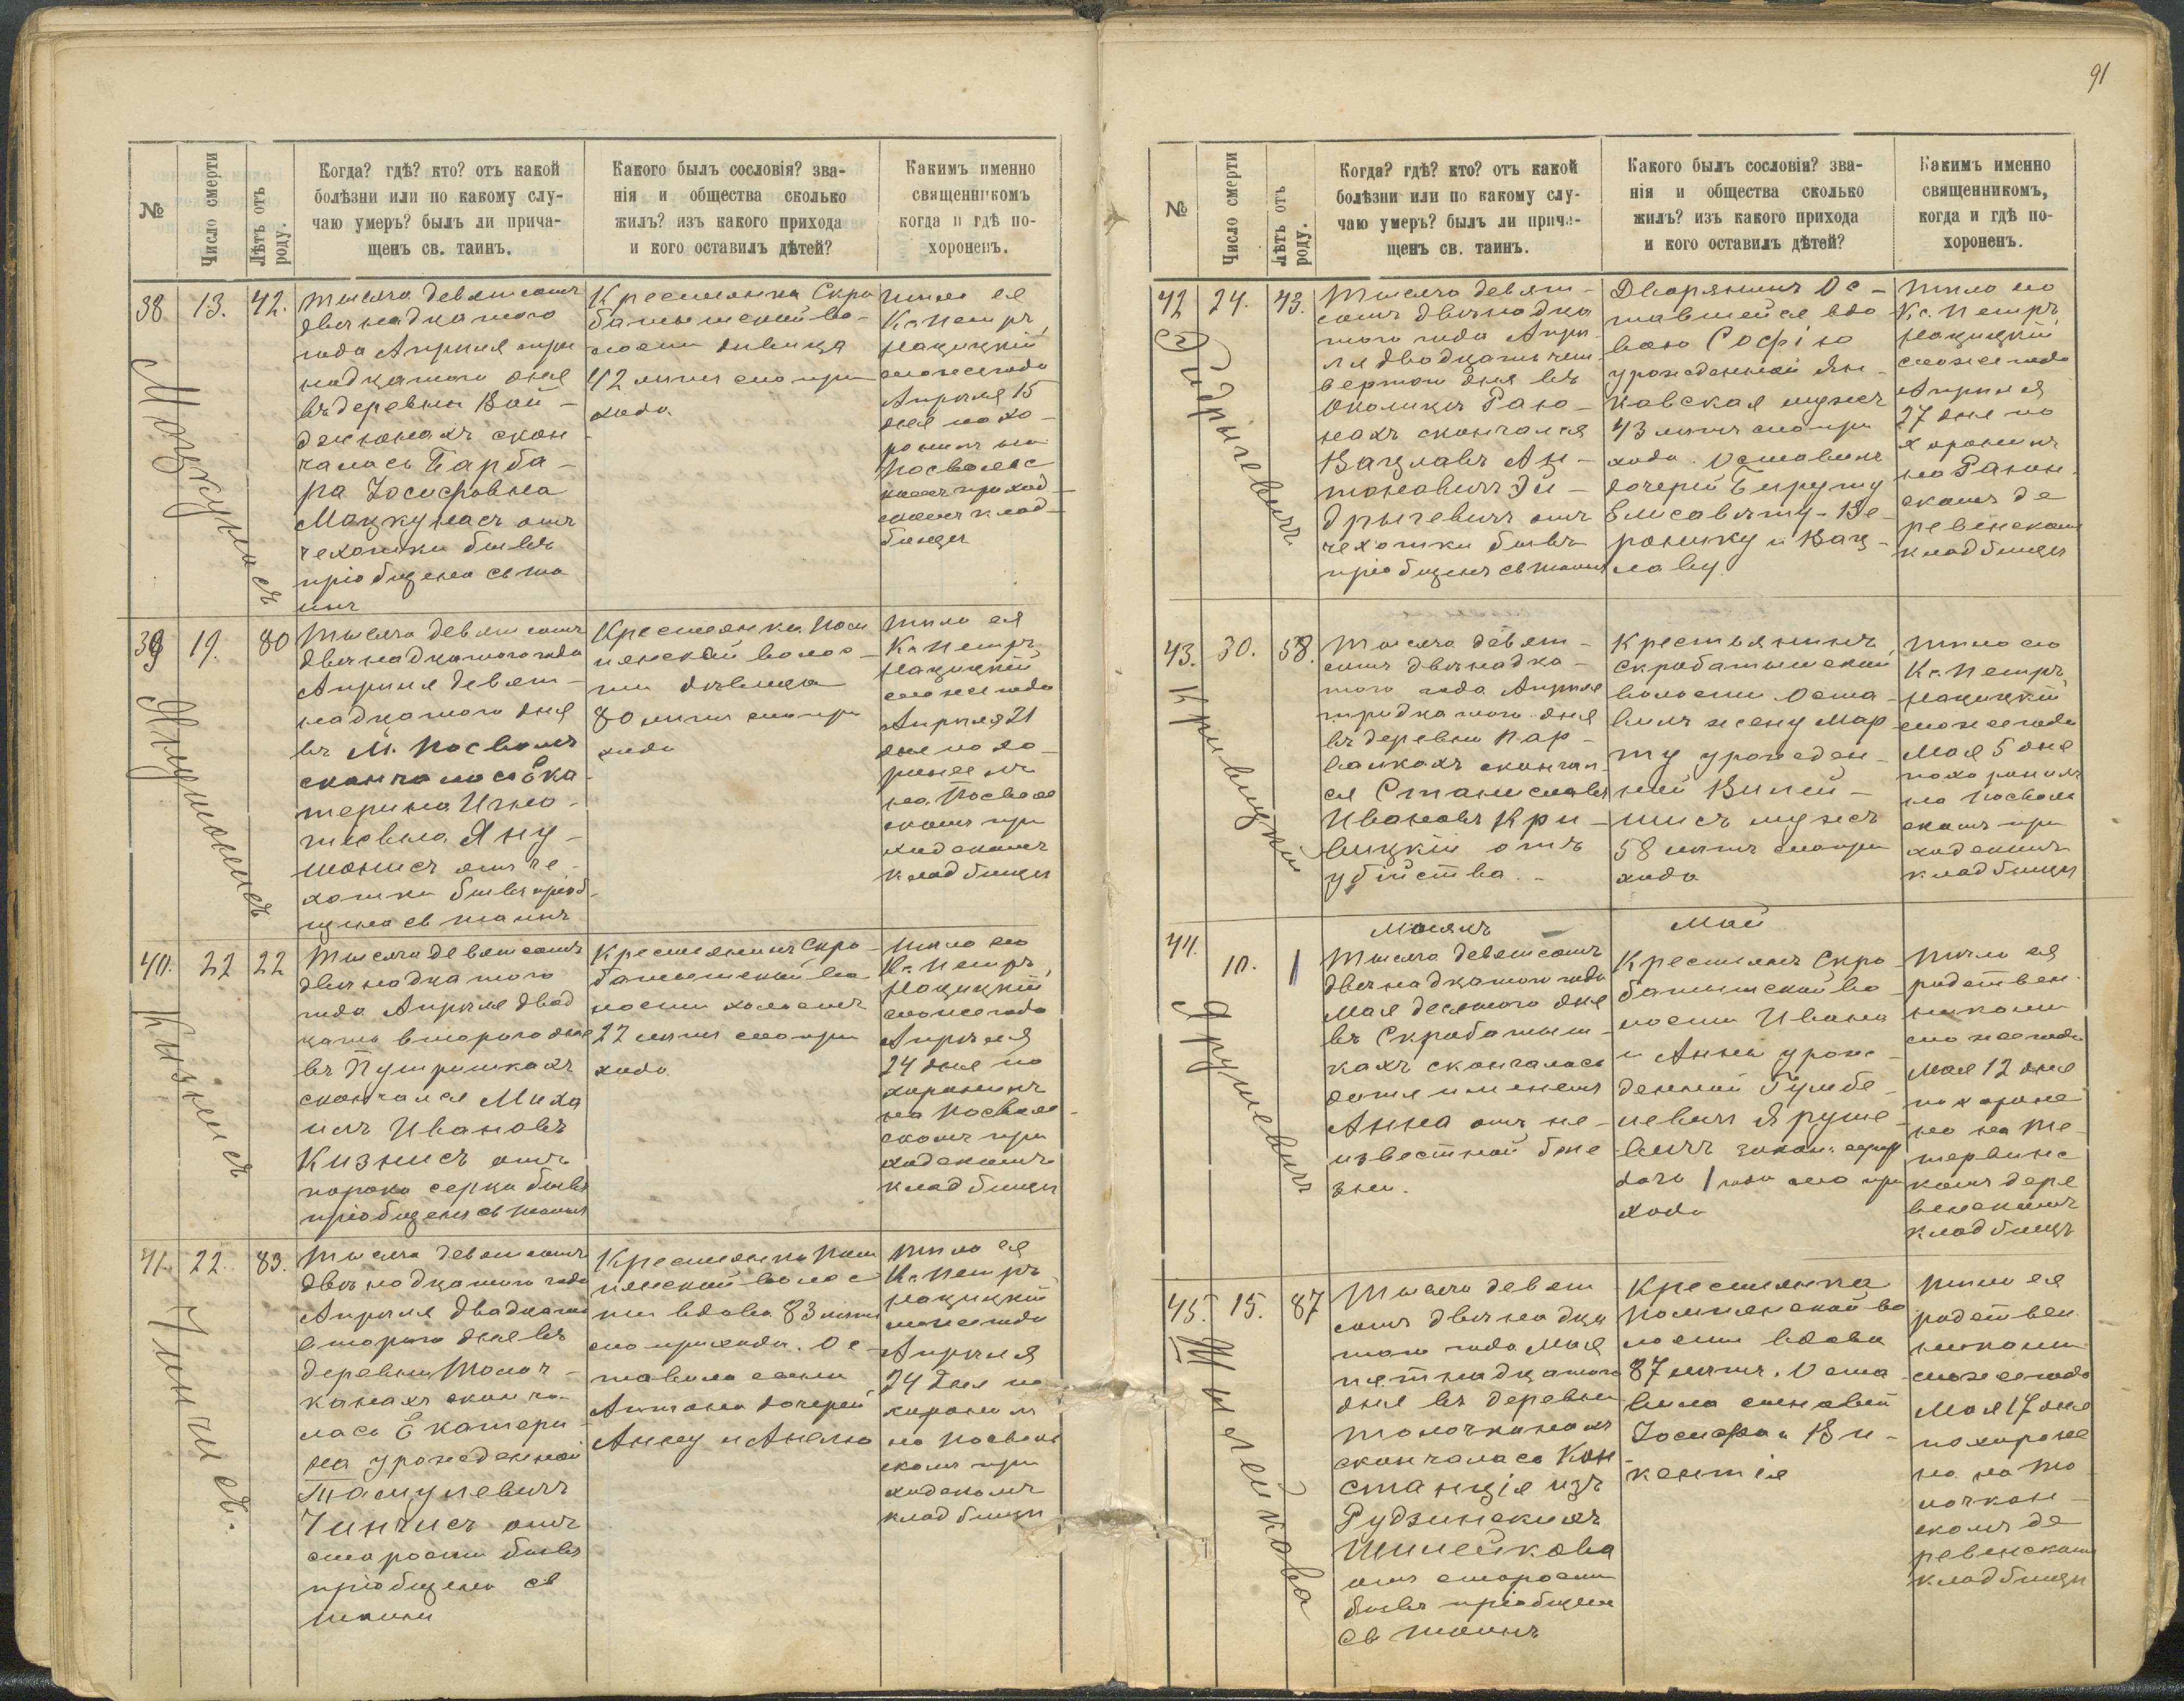 91
№
Число смерти
Лѣтъ отъ роду.
Когда? гдѣ? кто? отъ какой
болѣзни или по какому слу-
чаю умеръ? былъ ли прича-
щенъ св. таинъ.
Какого былъ сословія? зва-
нія и общества сколько
жилъ? изъ какого прихода
и кого оставилъ дѣтей?
Какимъ именно
священникомъ
когда и гдѣ по-
хороненъ.
38
13.
42.
Мацкунасъ
Тысяча девятсотъ
двѣнадцатого
года Апрѣля три
надцатого дня
въ деревни Вой-
джюнахъ скон
чалась Барба-
ра Іосифовна
Мацкунасъ отъ
чехотки бывъ
пріобщена св та
инъ
Крестянка Скро
батышской во-
лости дѣвица
42 лѣтъ сего при
хода
тѣло ея
Кс. Петръ
Нацицкій
сего же года
Апрѣля 15
дня похо-
ронилъ на
Посвольс
комъ приход-
скомъ клад-
бищи
39
19.
80
Янушонисъ
Тысяча девятсотъ
двѣнадцатого года
Апрѣля девят-
надцатого дня
въ м. Посволѣ
скончалась Ека
терина Игна-
тьевна Яну-
шонисъ отъ че-
хотки бывъ пріоб-
щена св таинъ
Крестянка Пом
пянской волос-
ти дѣвица
80 лѣтъ сего при
хода
Тѣло ея
Кс. Петръ
Нацицкій
сего же года
Апрѣля 21
дня похо-
ронилъ
на Посволь
скомъ при
ходскомъ
кладбищи
40.
22
22
Кизнисъ
Тысяча девятсотъ
двѣнадцатого
года Апрѣля двад
цать второго дня
въ Путришкахъ
скончался Миха
илъ Ивановъ
Кизнисъ отъ
порока серца бывъ
пріобщенъ св таинъ
Крестянинъ Скро-
батышской во
лости холостъ
22 лѣтъ сего при
хода.
тѣло его
Кс. Петръ
Нацицкій
сего же года
Апрѣля
24 дня по
хоронилъ
на Посволь-
скомъ при
ходскомъ
кладбищи
41.
22.
83.
Чинчисъ.
Тысяча девятсотъ
двѣнадцатого года
Апрѣля двадцать
второго дня въ
деревни Толоч-
канахъ сконча-
лась Екатери-
на урожденной
Тамулевичъ
Чинчисъ отъ
старости бывъ
пріобщена св
таинъ
Крестянка Пом
пянской волос
ти вдова 83 лѣтъ
сего прихода. Ос-
тавила сына
Антона дочерей
Анну и Анелю
тѣло ея
Кс. Петръ
Нацицкій
сего же года
Апрѣля
24 дня по
хоронилъ
на Посволь
скомъ при
ходскомъ
кладбищи
№
Число смерти
Лѣтъ отъ роду.
Когда? гдѣ? кто? отъ какой
болѣзни или по какому слу-
чаю умеръ? былъ ли прича-
щенъ св. таинъ.
Какого былъ сословія? зва-
нія и общества сколько
жилъ? изъ какого прихода
и кого оставилъ дѣтей?
Какимъ именно
священникомъ,
когда и гдѣ по-
хороненъ.
42
24.
43.
Эйдрыгевичъ
Тысяча девят-
сотъ двѣнадца
того года Апрѣ
ля двадцать чет-
вертого дня въ
Околицѣ Раю-
нахъ скончался
Вацлавъ Ан-
тоновичъ Эй-
дрыгевичъ отъ
чехотки бывъ
пріобщенъ св таинъ
Дворянинъ Ос-
тавшейся вдо
вою Софію
урожденной Ян-
ковская мужъ
43 лѣтъ сего при
хода. Оставилъ
дочерей Бируту
Елисавѣту-Ве-
ронику и Вац-
лаву.
Тѣло его
Кс. Петръ
Нацицкій
сего же года
Апрѣля
27 дня по
хоронилъ
на Раюн-
скомъ де
ревенскомъ
кладбищи
43.
30.
58.
Кривицкій
Тысяча девят-
сотъ двѣнадца-
того года Апрѣля
тридцатого дня
въ деревни Пар-
валкахъ скончал-
ся Станиславъ
Ивановъ Кри-
вицкій отъ
убійства.
Крестьянинъ
Скробатышской
волости Оста-
вилъ жену Мар
ту урожден-
ной Вилей-
шисъ мужъ
58 лѣтъ сего при
хода
Тѣло его
Кс. Петръ
Нацицкій
сего же года
Мая 5 дня
похоронилъ
на Посволь
скомъ при
ходскомъ
кладбищи
Май
44.
10.
1
Ярушевичъ
Тысяча девятсотъ
двѣнадцатого года
Мая десятого дня
въ Скробатыш-
кахъ скончалась
дитя именемъ
Анна отъ не-
известной боле
зни.
Крестянъ Скро
батышской во-
лости Ивана
и Анны урож-
денной Гумбе-
левичъ Яруше-
вичъ
дочь 1 года сего при
хода
тѣло ея
родствен-
никами
сего же года
Мая 12 дня
похороне
но на Те-
тервинс
комъ дере
венскомъ
кладбищѣ
45.
15.
87
Шилейкова
Тысяча девят
сотъ двѣнадца
того года Мая
пятнадцатого
дня въ деревни
Толочканахъ
скончалась Кон-
станція изъ
Рудзинскихъ
Шилейкова
отъ старости
бывъ пріобщена
св таинъ
Крестянка
Помпянской во
лости вдова
87 лѣтъ. Оста-
вила сыновей
Іосифа и Ви-
кентія
тѣло ея
родствен-
никами
сего же года
Мая 17 дня
похороне
на на То
лочкан-
скомъ де
ревенскомъ
кладбищи